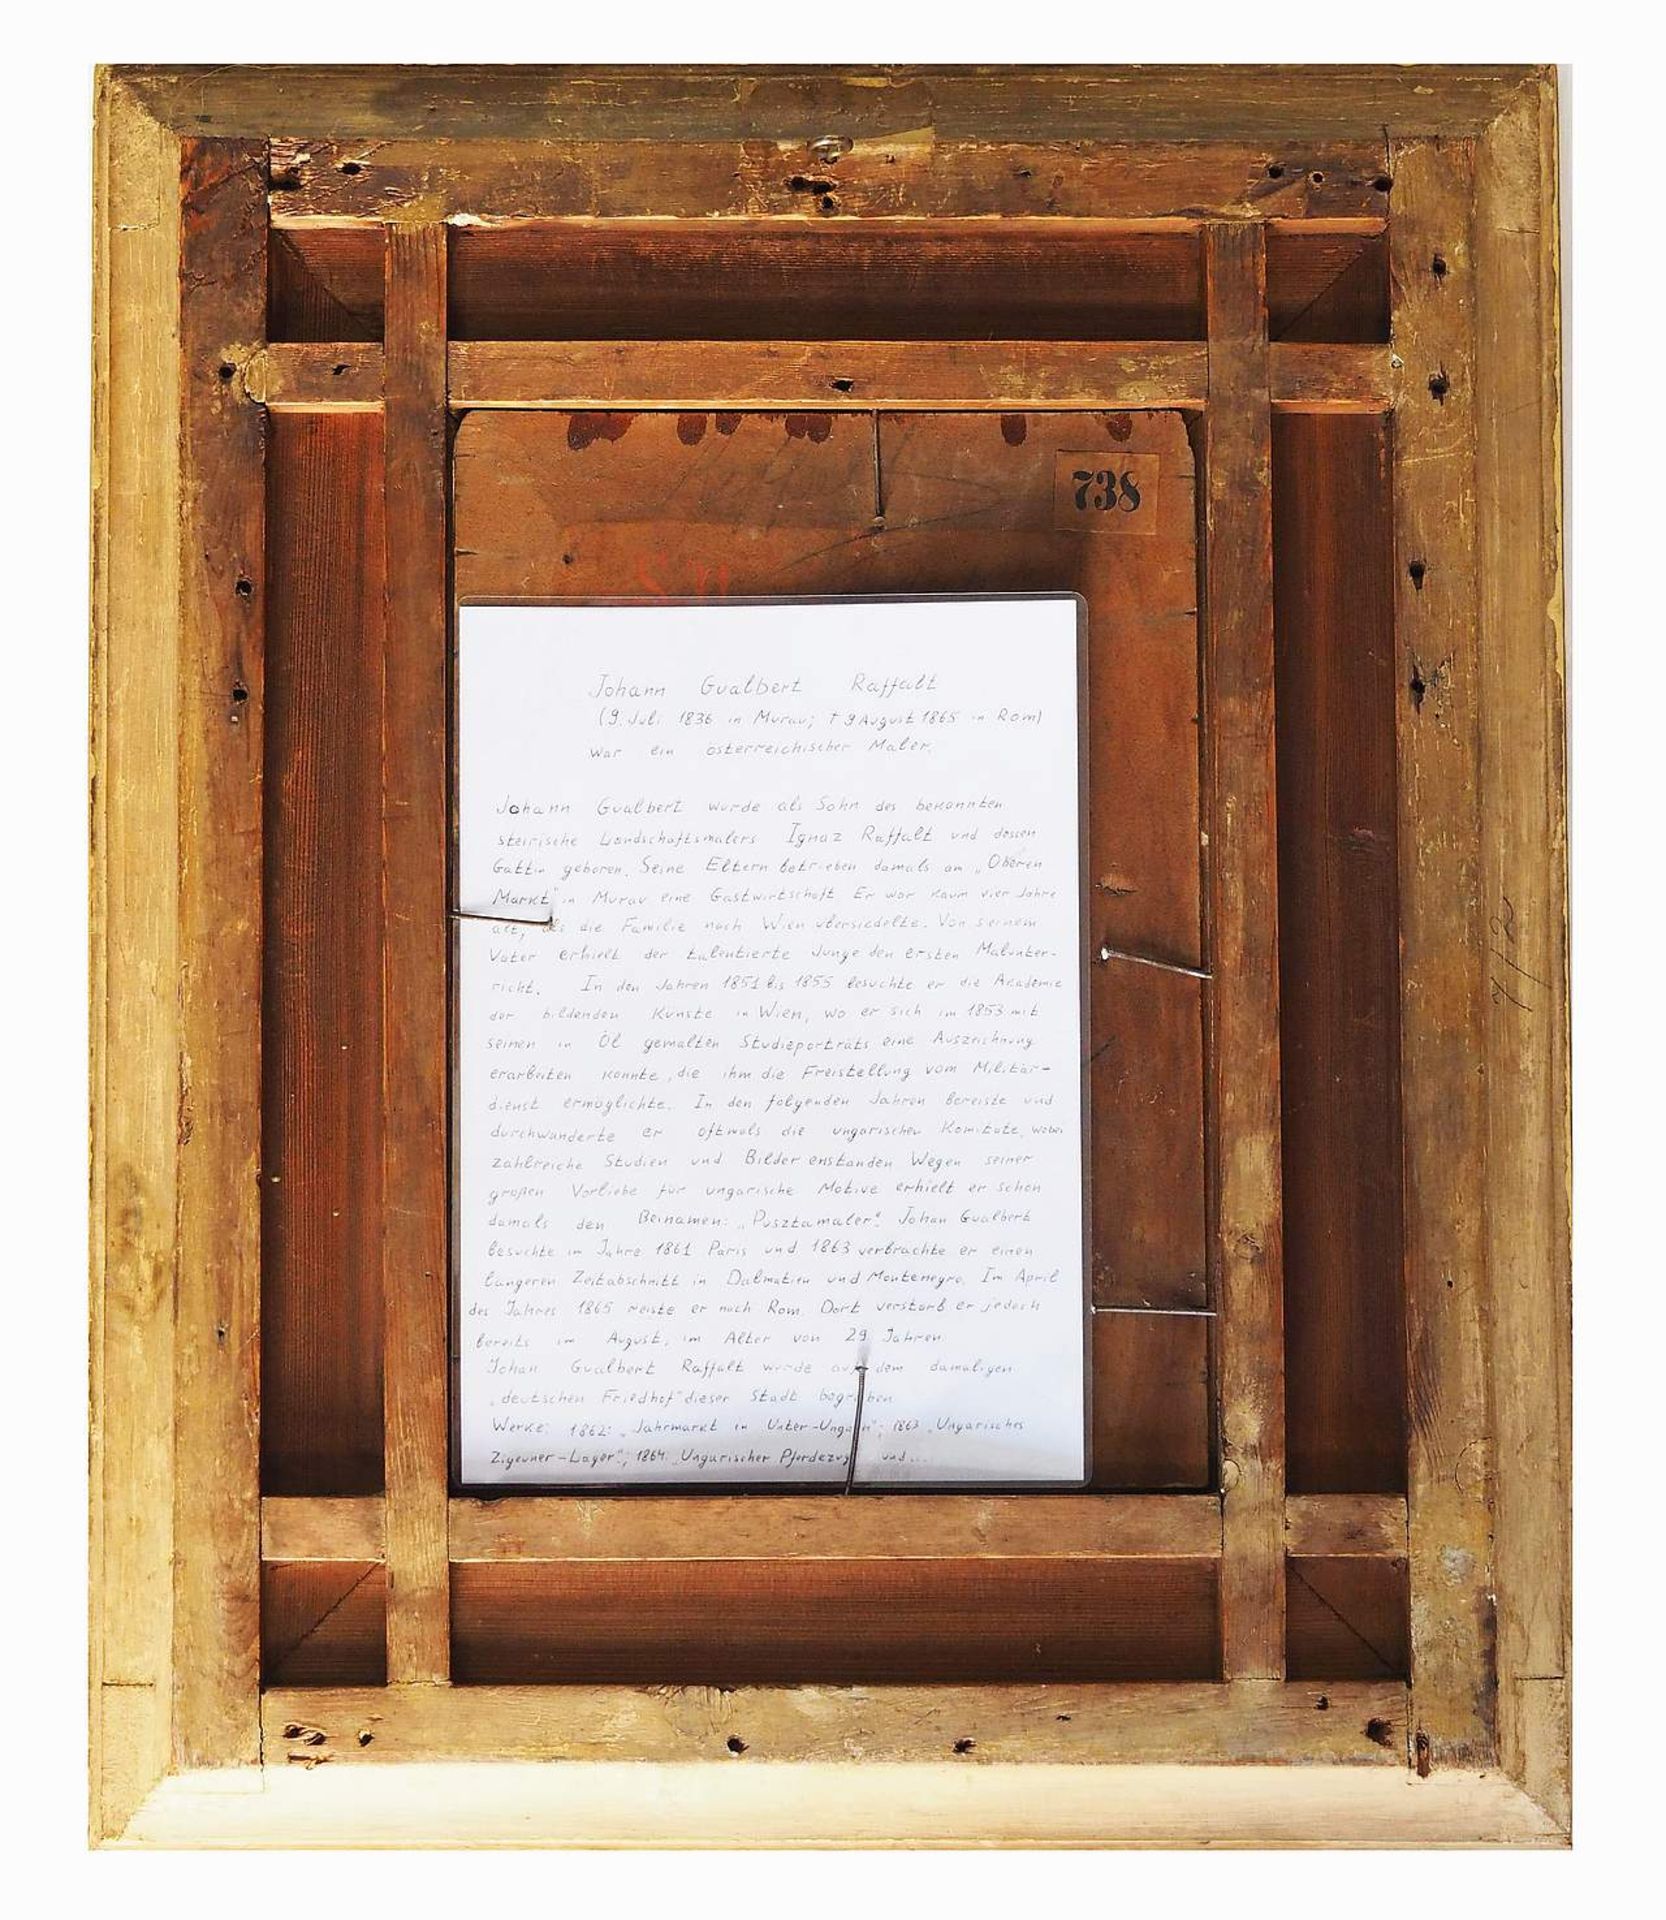 738
Johann Gualbert Raffalt
(9. Juli 1836 in Murau; † 9 August 1865 in Rom)
war ein österreichischer Maler.
Johann Gualbert wurde als Sohn des bekannten
steirische Landschaftsmalers Ignaz Raffalt und dessen
Gattin geboren. Seine Eltern betrieben damals am „Oberen
Markt" in Murau eine Gastwirtschaft Er war kaum vier Jahre
alt, als die Familie nach Wien übersiedelte. Von seinem
Vater erhielt der talentierte Junge den ersten Malunter-
richt. In den Jahren 1851 bis 1855 besuchte er die Akademie
der bildenden Künste in Wien, wo er sich im 1853 mit
seinen in Öl gemalten Studieporträts eine Auszeichnung
erarbeiten konnte, die ihm die Freistellung vom Militär-
dienst ermöglichte. In den folgenden Jahren bereiste und
durchwanderte er oftmals die ungarischen Komitate, wobei
zahlreiche Studien und Bilder enstanden Wegen seiner
großen Vorliebe für ungarische Motive erhielt er schon
damals den Beinamen: „Pusztamaler". Johan Gualbert
besuchte im Jahre 1861 Paris und 1863 verbrachte er einen
längeren Zeitabschnitt in Dalmatien und Montenegro. Im April
des Jahres 1865 reiste er nach Rom. Dort verstarb er jedoch
bereits im August, im Alter von 29 Jahren
Johan Gualbert Raffalt wurde auf dem damaligen
„deutschen Friedhof" dieser Stadt begraben
Werke: 1862: „Jahrmarkt in Unter-Ungarn"; 1863 „Ungarisches
Zigeuner-Lager"; 1864 „Ungarischer Pferdezug und...